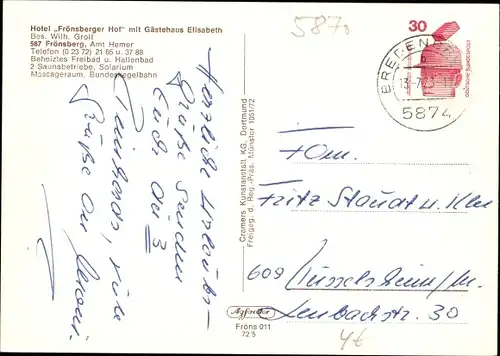 Hotel „Frönsberger Hof" mit Gästehaus Elisabeth
Bes. Wilh. Groll
587 Frönsberg, Amt Hemer
Telefon (0 23 72) 21 65 u. 37 88
Beheiztes Freibad u. Hallenbad
2 Saunabetriebe, Solarium
Massageraum, Bundeskegelbahn
Herzliche Urlaubs-
grüße senden
Euch die 3
Grüße an
Cramers Kunstanstalt KG, Dortmund
Freigeg. d. Reg.-Präs. Münster 1051/72
Fröns 011
72 5
587o
30
DEUTSCHE BUNDESPOST
5874
Fam.
Fritz Staudt u. Kln
609 Rüsselsheim/M.
Lenbachstr. 30
4€